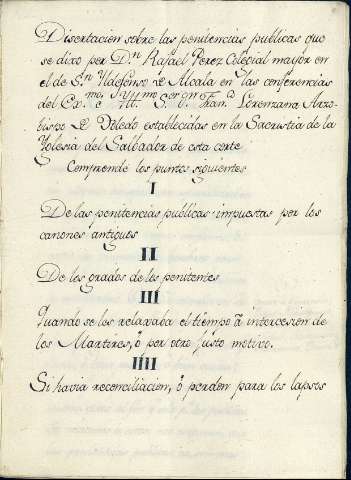 Disertacion sobre las penitencias publicas que
se dixo por Dn Rafael Perez Colegial mayor en
el de Sn Yldefonso de Alcala en las conferencias
del Exmo. é Illmo Sor Dn Franco Lorenzana Arzo-
bispo de Toledo establecidas en la Sacristia de la
Yglesia del Salbador de esta corte
Comprende los puntos siguientes
I
De las penitencias publicas impuestas por los
canones antiguos
II
De los grados de los penitentes
III
Quando se les relaxaba el tiempo á intercesion de
los Martires, ó por otro justo motivo.
IIII
Si havia reconciliacion, ó perdon para los lapsos